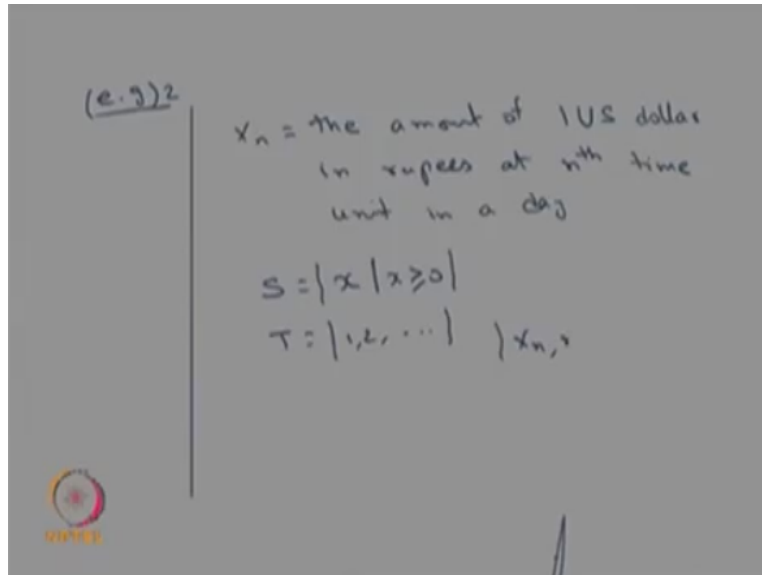 (e.g) 2
Xn = the amount of 1 US dollar
in rupees at nth time
unit in a day
S = { x | x ≥ 0 }
T = { 1, 2, ... } { Xn,
NPTEL